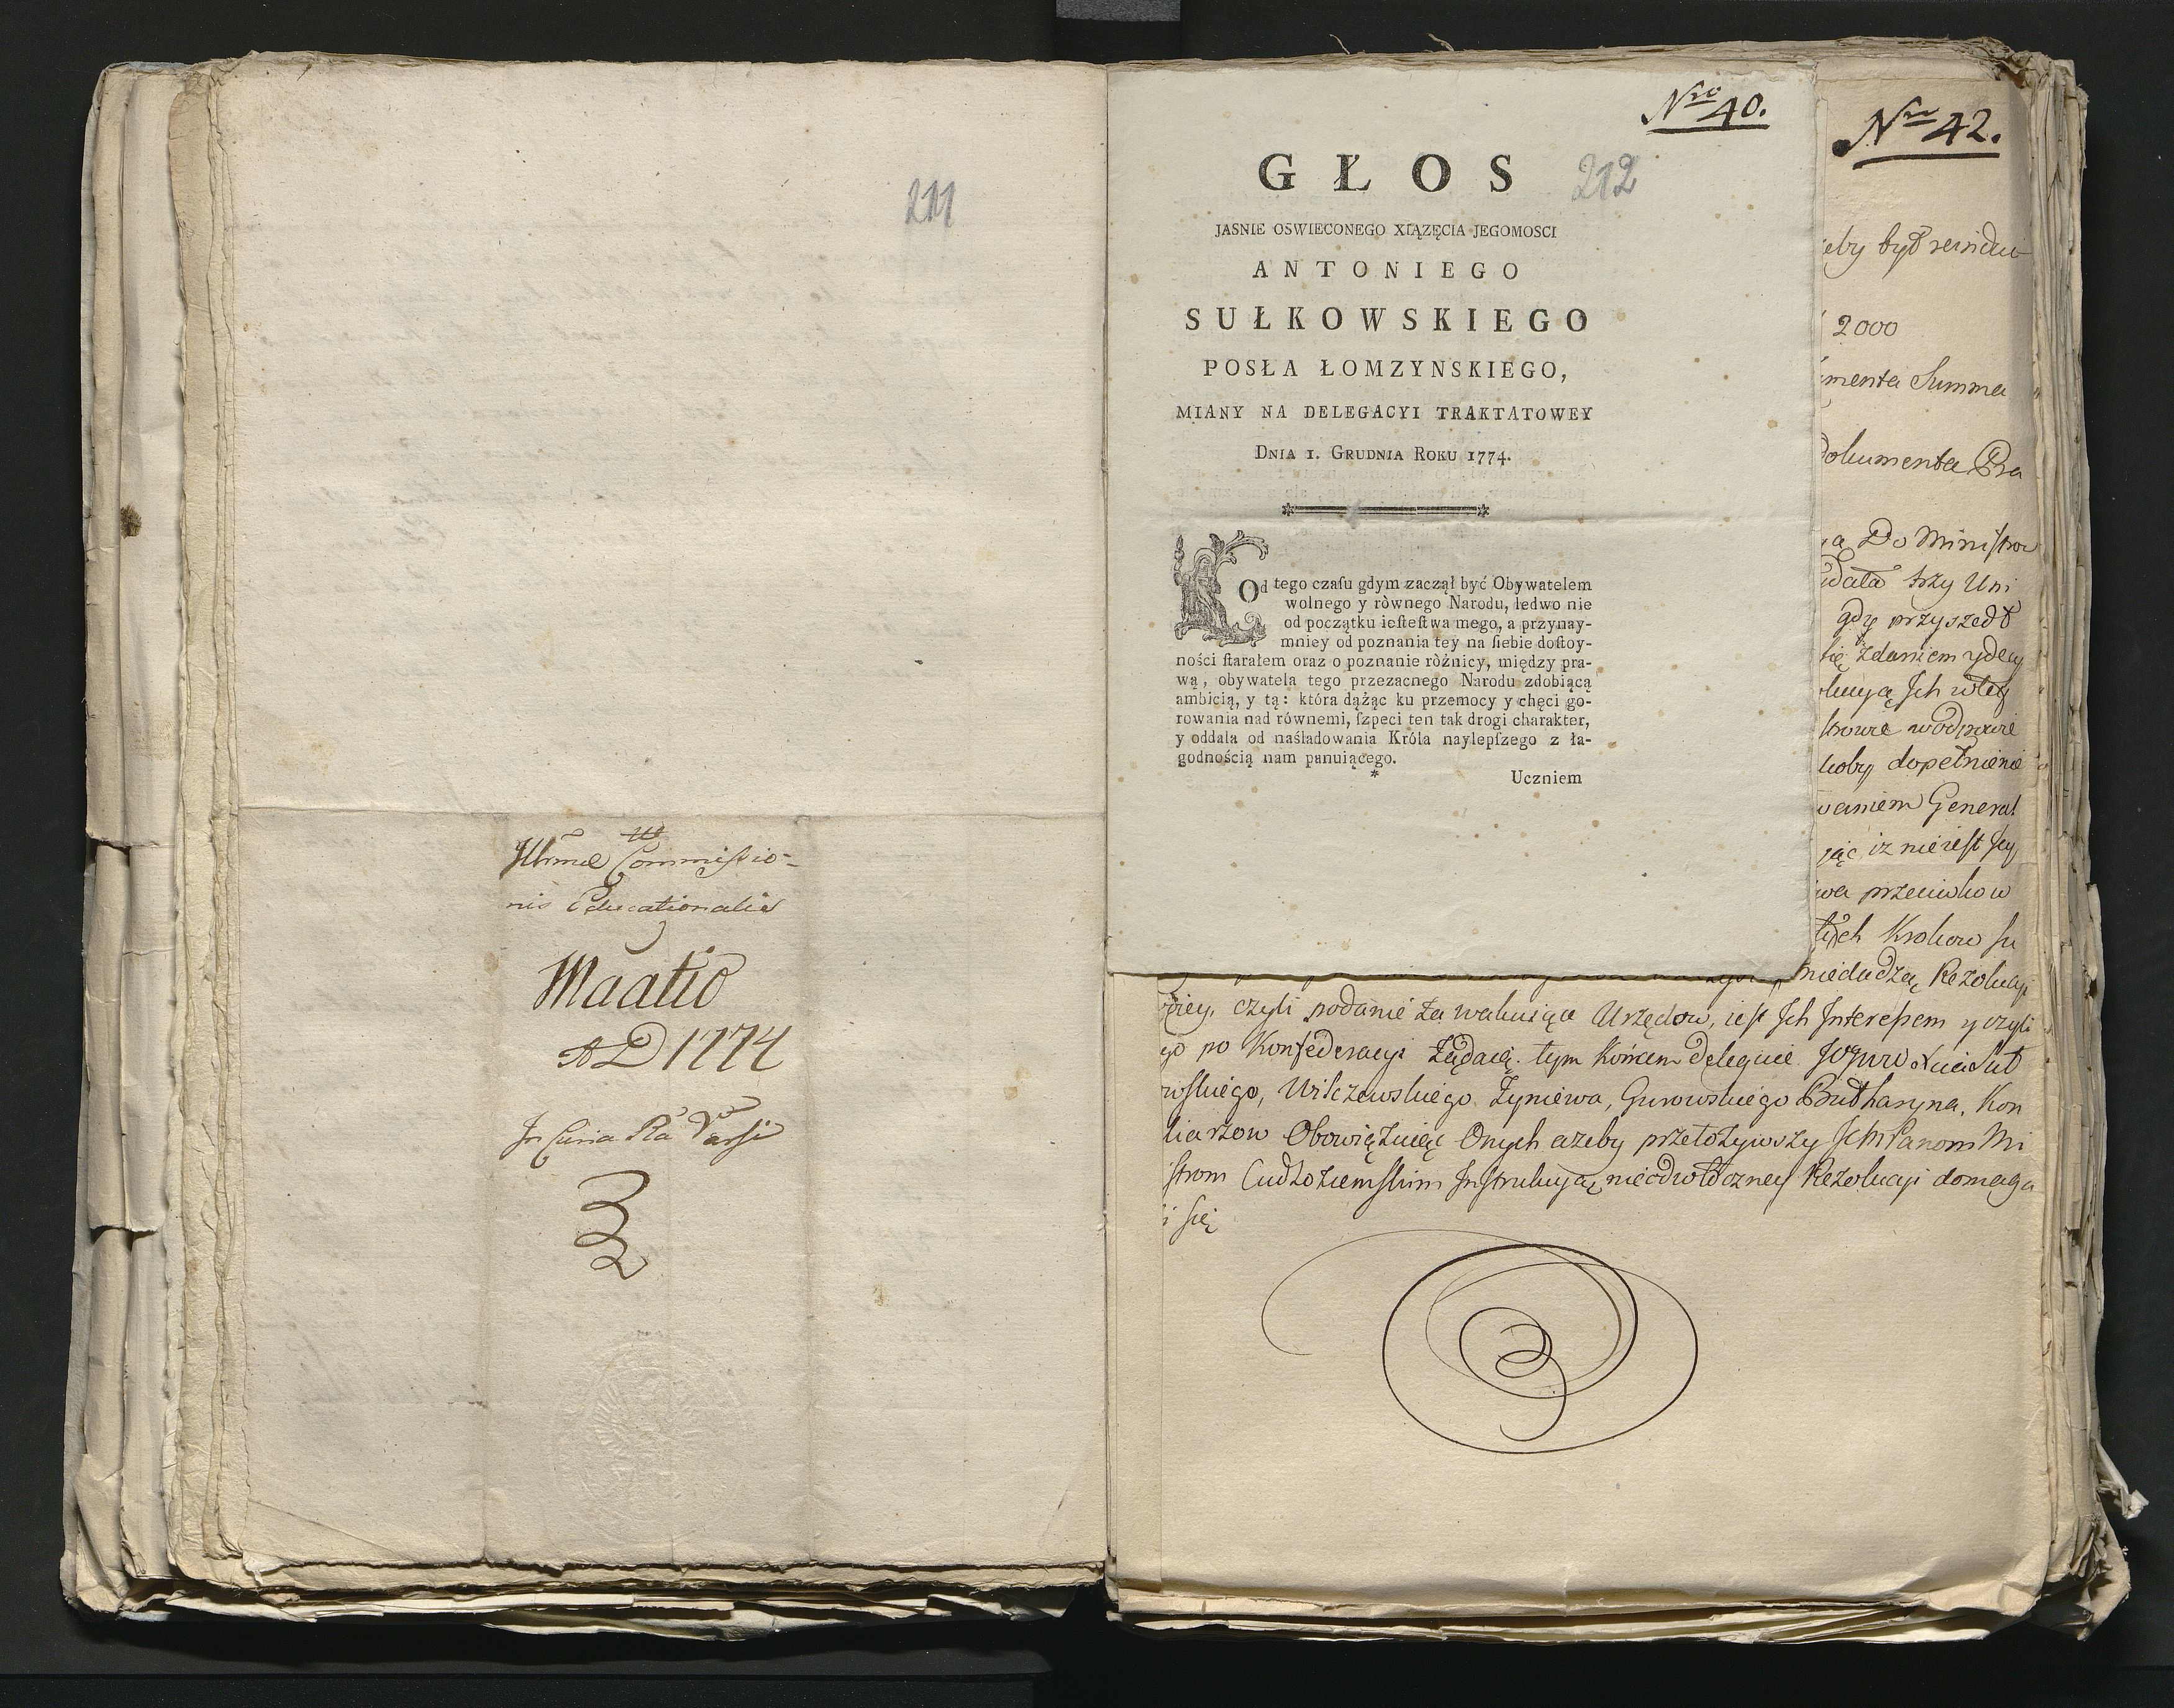 211
Commissio-
nis Educationalis
AD 1774
In Curia
Nro 40.
212
GŁOS
JASNIE OSWIECONEGO XIĄZĘCIA JEGOMOSCI
ANTONIEGO
SUŁKOWSKIEGO
POSŁA ŁOMZYNSKIEGO,
MIANY NA DELEGACYI TRAKTATOWEY
DNIA 1. GRUDNIA ROKU 1774.
Od tego czaſu gdym zaczął być Obywatelem
wolnego y ròwnego Narodu, ledwo nie
od początku ieſteſtwa mego, a przynay-
mniey od poznania tey na ſiebie doſtoy-
ności ſtarałem oraz o poznanie ròżnicy, między pra-
wą, obywatela tego przezacnego Narodu zdobiącą
ambicią, y tą: która dążąc ku przemocy y chęci go-
rowania nad równemi, ſzpeci ten tak drogi charakter,
y oddala od naśladowania Króla naylepſzego z ła-
godnością nam panuiącego.
* Uczniem
Nro 42.
eby był
2000
menta Summa
Dokumenta Pra
Do Ministrow
trzy Uni
gdy przyszedł
zdaniem
Ich
dopełnienie
waniem General
iz nie iest
przeciwko w
tych Krokow
Rezolucyi
czyli podanie Urzędow, iest Ich Interessem y czyli
po Konfederacyi Żądaią. tym Końcem deleguie
wskiego, Wilczewskiego Żyniewa, Gurowskiego Kon
Obowięzuiąc Onych azeby przełożywszy Ichm Panom Mi
strom Cudzoziemskim Instrukcyą nieodwłoczney Rezolucyi domaga
li się